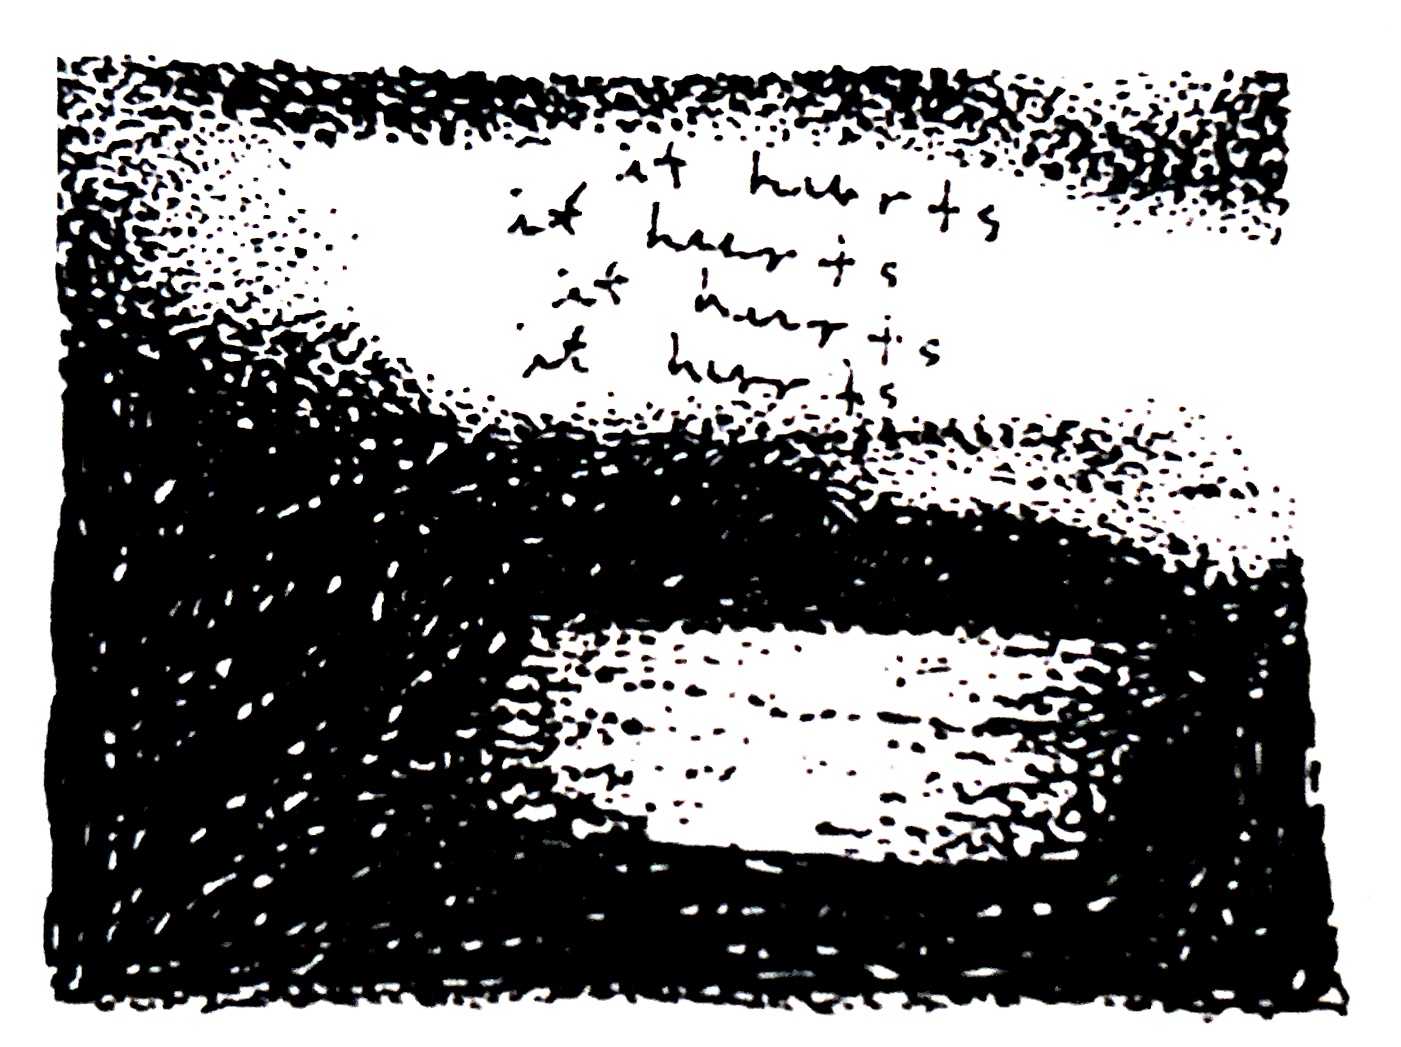 it hurts
it hurts
it hurts
it hurts